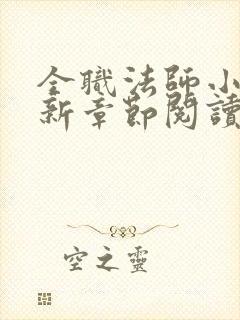 全職法師小
新章節閱讀
空之靈